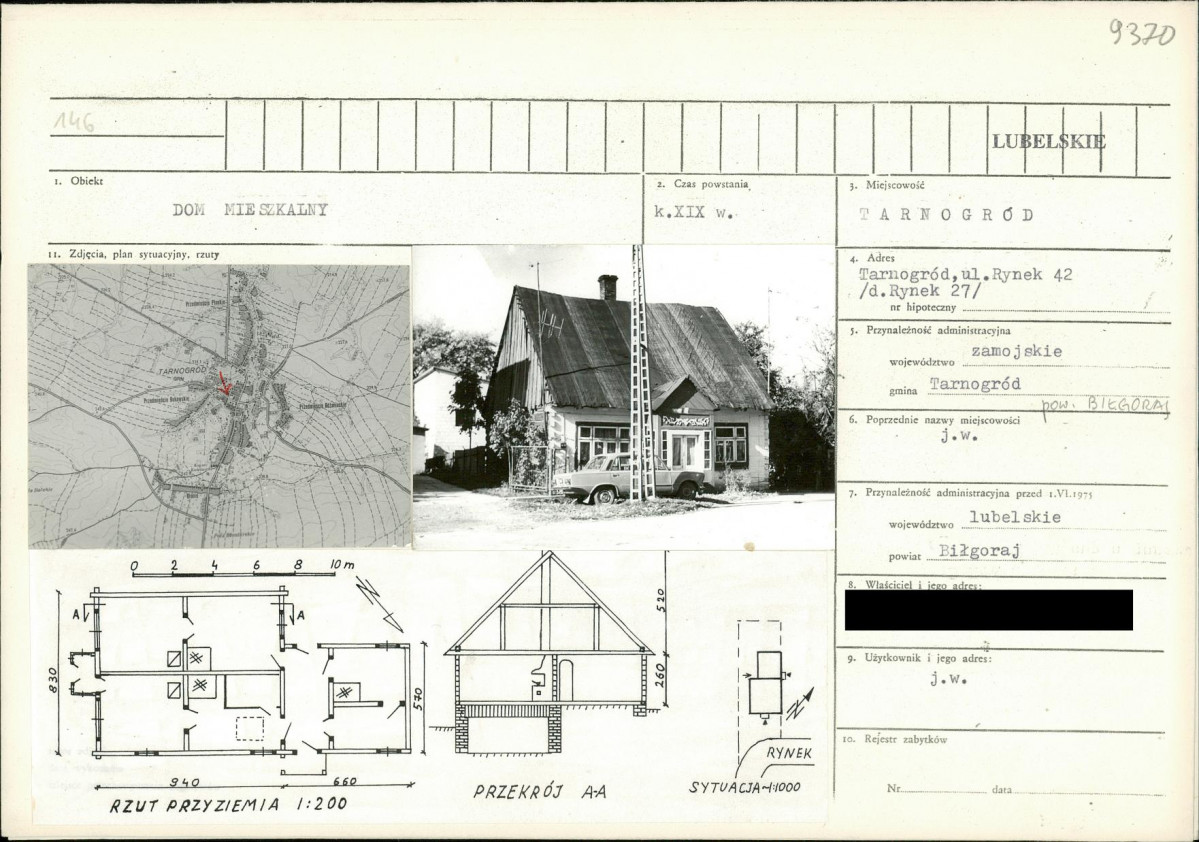 9370
146
LUBELSKIE
1. Obiekt
DOM MIESZKALNY
2. Czas powstania
k.XIX w.
3. Miejscowość
TARNOGRÓD
11. Zdjęcia, plan sytuacyjny, rzuty
TARNOGRÓD
4. Adres
Tarnogród,ul.Rynek 42
/d.Rynek 27/
nr hipoteczny
5. Przynależność administracyjna
województwo zamojskie
gmina Tarnogród
pow. BIŁGORAJ
6. Poprzednie nazwy miejscowości
j.w.
7. Przynależność administracyjna przed 1.VI.1975
województwo lubelskie
powiat Biłgoraj
8. Właściciel i jego adres:
9. Użytkownik i jego adres:
j.w.
10. Rejestr zabytków
Nr data
0 2 4 6 8 10 m
A A
830
570
940 660
RZUT PRZYZIEMIA 1:200
520
260
PRZEKRÓJ A-A
RYNEK
SYTUACJA~1:1000